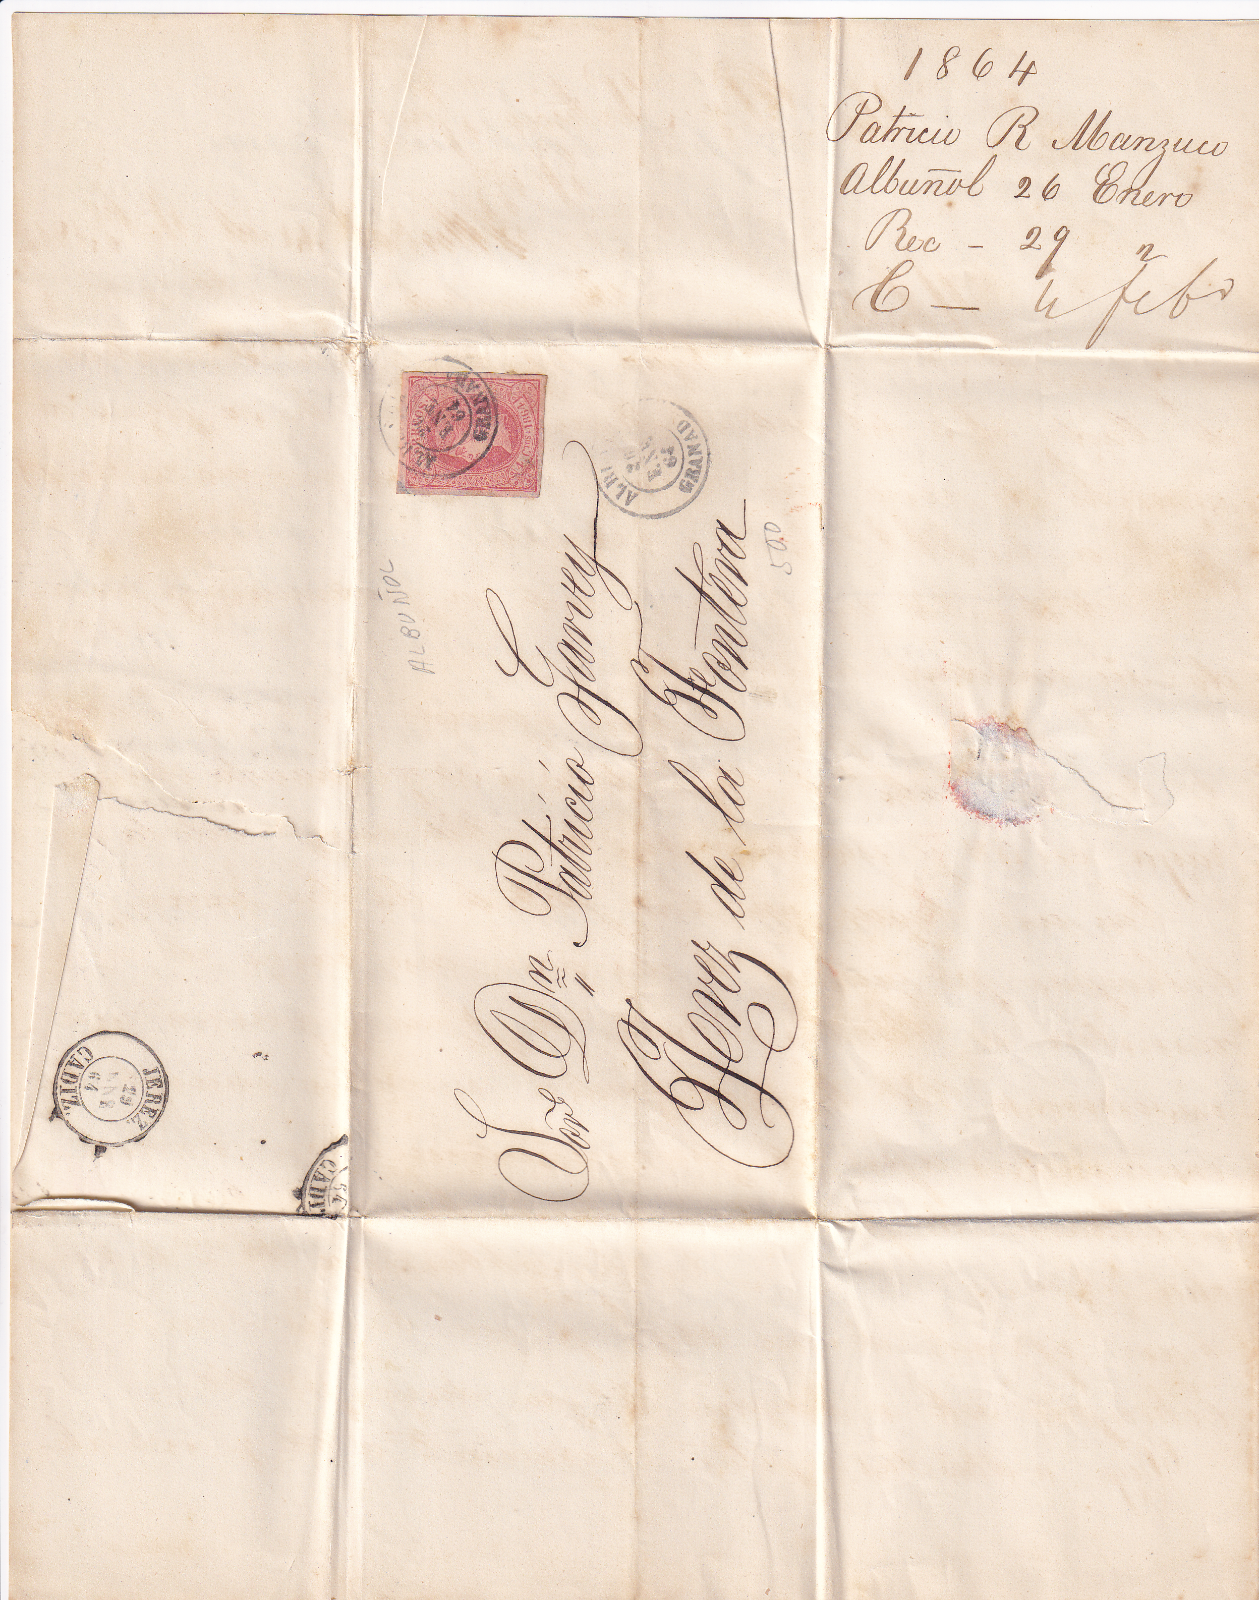 1864
Patricio R Manzuco
Albuñol 26 Enero
Rec - 29 "
C — 4 feb°
ALBUÑOL
GRANAD
64
Sor Dn Patricio Garvey
Jerez de la Frontera
500
JEREZ.
29
ENE
64
CADIZ.
64
CADI